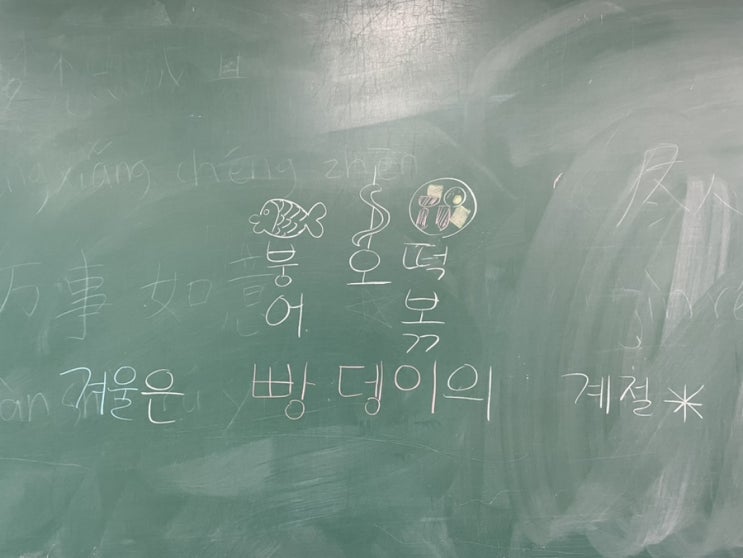 xiǎng chéng zhēn
붕 오 떡
万事如意 어 볶
겨울은 빵 뎅 이의 계절*